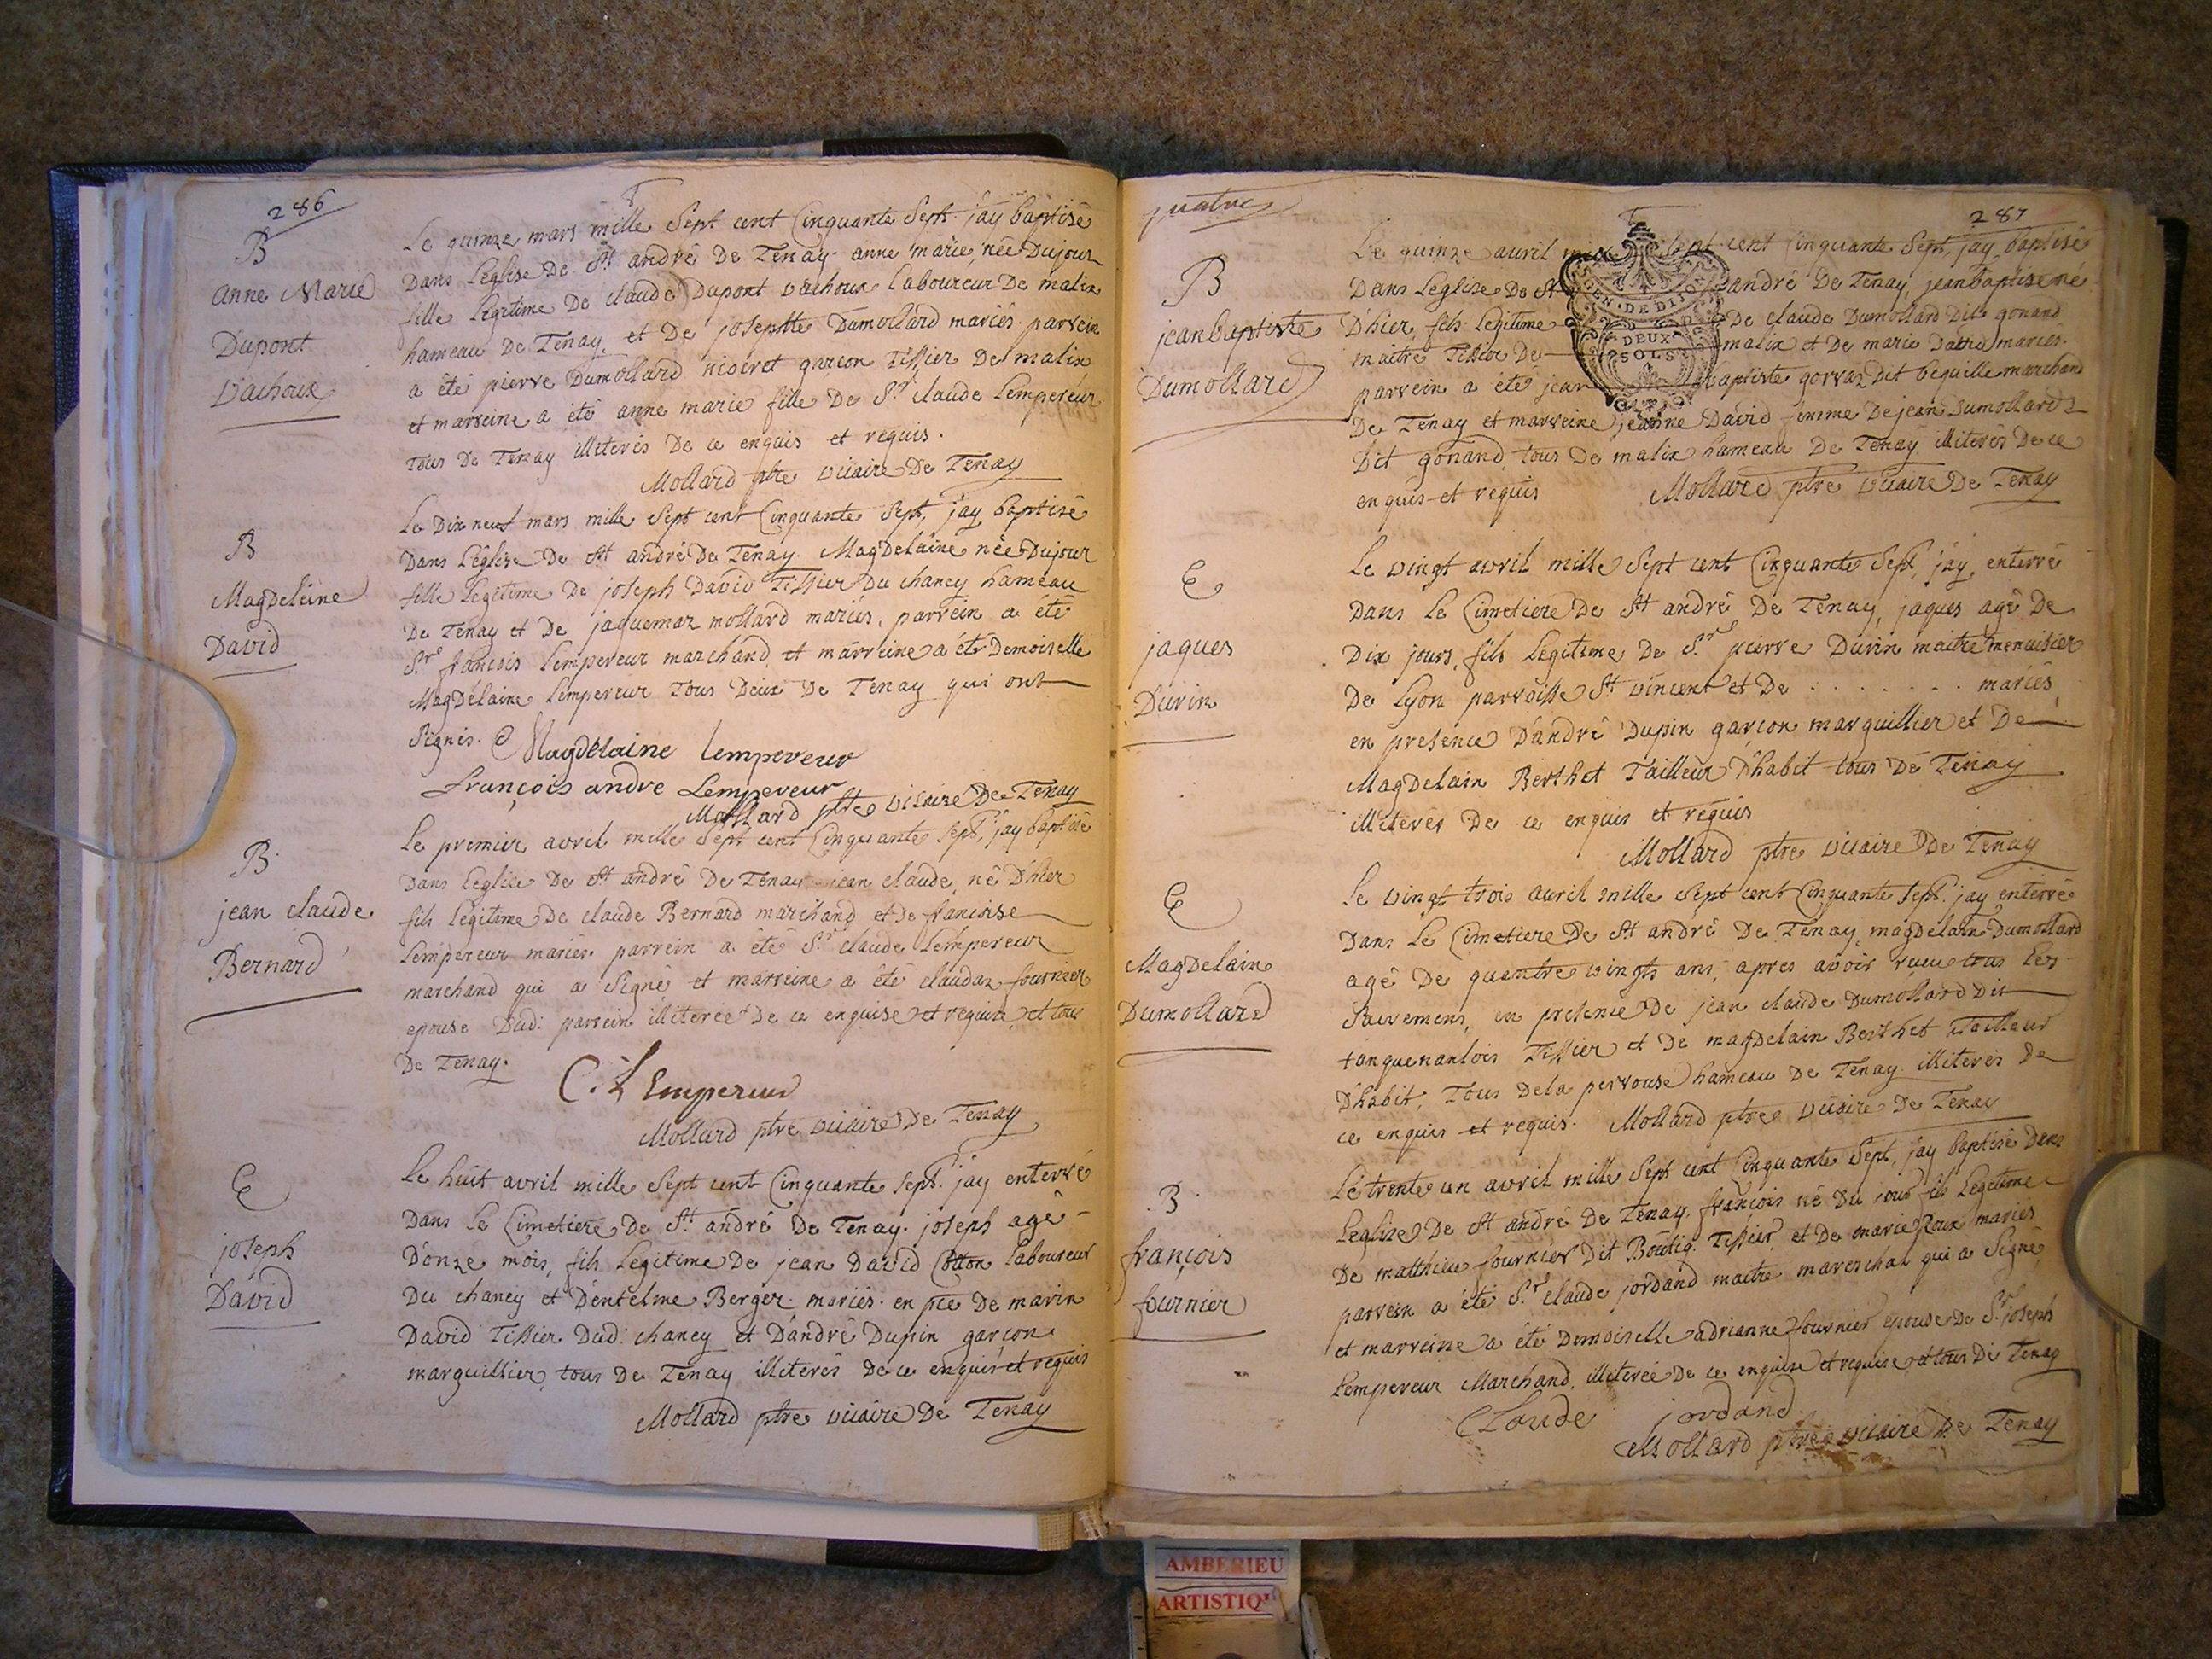 286
B
anne Marie
Dupont
Vachoux
Le quinze mars mille Sept cent Cinquante Sept jay baptisé
Dans Leglise De St andré De Tenay anne marie, née Dujour
fille Legitime De claude Dupont vachoux laboureur De malix
hameau De Tenay, et De josephte Dumollard mariés. parrein
a été pierre Dumollard niseret garçon Tissier De malix
et marreine a été anne marie fille De Sr claude Lempereur
tous De Tenay illiterés De ce enquis et requis.
Mollard ptre vicaire De Tenay
B
Magdeleine
David
Le Dix neuf mars mille Sept cent Cinquante Sept, jay baptisé
Dans Léglise De St andré De Tenay. Magdelaine née Dujour
fille Legitime De joseph David Tissier Du chaney hameau
De Tenay et De jaquemaz mollard mariés, parrein a été
Sre francois Lempereur marchand, et marreine a été Demoiselle
Magdelaine Lempereur tous Deux De Tenay qui ont
Signés.
Magdelaine lempereur
françois andre Lempereur
Mollard ptre vicaire De Tenay
B
jean claude
Bernard
Le premier avril mille Sept cent Cinquante Sept, jay baptisé
Dans Leglise De St andré De Tenay jean claude, né D'hier
fils Légitime De claude Bernard marchand et De francoise
Lempereur mariés. parrein a été Sr claude Lempereur
marchand qui a Signé et marreine a été claudaz fournier
epouse Dud: parrein illiterée De ce enquise et requise, et tous
De Tenay.
C. L'Empereur
Mollard ptre vicaire De Tenay
E
joseph
David
Le huit avril mille Sept cent Cinquante Sept. jay enterré
Dans Le Cimetiere De St andré De Tenay. joseph agé
D'onze mois, fils Legitime De jean David Cotton laboureur
Du chaney et D'entelme Berger mariés. en pce De marin
David Tissier Dud: chaney et D'andré Dupin garçon
marguillier, tous De Tenay illiterés De ce enquis et requis
Mollard ptre vicaire De Tenay
quatre
287
GEN. DE DIJON
DEUX
SOLS
B
jean baptiste
Dumollard
Le quinze avril mille Sept cent Cinquante Sept, jay baptisé
Dans Leglise De St andré De Tenay, jean baptise né
D'hier, fils Legitime De claude Dumollard Dit gonand
maitre Tissier De malix et De marie David mariés.
parrein a été jean Baptiste gorraz Dit bequille marchand
De Tenay et marreine jeanne David femme De jean Dumollard
Dit gonand, tous De malix hameau De Tenay illiterés De ce
enquis et requis
Mollard ptre vicaire De Tenay
E
jaques
Durin
Le vingt avril mille Sept cent Cinquante Sept, jay enterré
Dans Le Cimetiere De St andré De Tenay, jaques agé De
Dix jours, fils Legitime De Sr pierre Durin maitre menuisier
De Lyon parroisse St vincent et De . . . . . . . . mariés
en presence D'andré Dupin garçon marguillier et De
Magdelain Berthet Tailleur D'habit tous De Tenay
illiterés De ce enquis et requis
Mollard ptre vicaire De Tenay
E
Magdelain
Dumollard
Le vingt trois avril mille Sept cent Cinquante Sept. jay enterré
Dans Le Cimetiere De St andré De Tenay, magdelain Dumollard
agé De quantre vingts ans, apres avoir reçu tous Les
Sacremens, en presence De jean claude Dumollard Dit
Tissier et De magdelain Berthet Tailleur
D'habit, Tous De la perrouse hameau De Tenay illiterés De
ce enquis et requis. Mollard ptre vicaire De Tenay
B
françois
fournier
Le trente un avril mille Sept cent Cinquante Sept, jay baptisé Dans
Leglise De St andré De Tenay. françois né Du jour fils Legitime
De matthieu fournier Dit Tissier, et De marie Roux mariés
parrein a été Sre claude jordand maitre mareschal qui a Signé
et marreine a été Demoiselle adrianne fournier epouse De Sr joseph
Lempereur Marchand, illiterée De ce enquise et requise, et tous De Tenay
Claude jordand
Mollard ptre vicaire De Tenay
AMBERIEU
ARTISTIQ